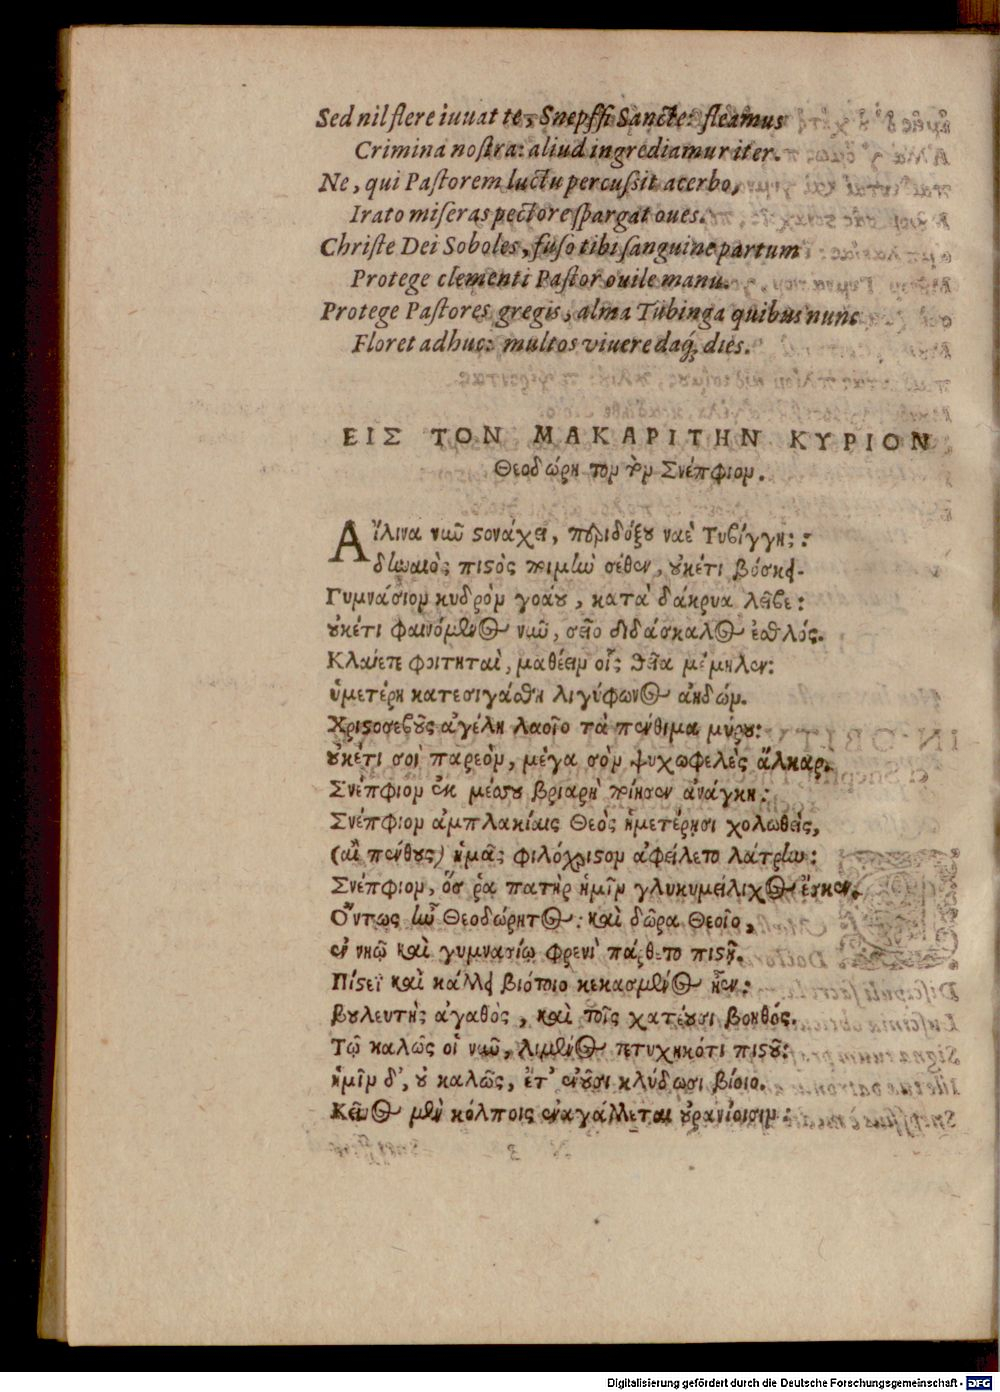 Sed nil flere iuuat te, Snepffi Sancte: fleamus
Crimina nostra: aliud ingrediamur iter.
Ne, qui Pastorem luctu percussit acerbo,
Irato miseras pectore spargat oues.
Christe Dei Soboles, fuso tibi sanguine partum
Protege clementi Pastor ouile manu.
Protege Pastores gregis, alma Tubinga quibus nunc
Floret adhuc: multos viuere daq́; dies.
ΕΙΣ ΤΟΝ ΜΑΚΑΡΙΤΗΝ ΚΥΡΙΟΝ
Θεοδώρητον τὸν Σνέπφιον.
Αἴλινα νῦν στονάχει, περιδόξου ναὲ Τυβίγγης:
δηναιὸς πιστὸς ποιμὴν σέθεν, οὐκέτι βόσκει.
Γυμνάσιον κυδρὸν γοάου, κατὰ δάκρυα λεῖβε:
οὐκέτι φαινόμενος νῦν, σεῖο διδάσκαλος ἐσθλός.
Κλαίετε φοιτηταὶ, μαθέειν οἷς θεῖα μέμηλεν:
ὑμετέρη κατεσιγάσθη λιγύφωνος ἀηδών.
Χριστοσεβοῦς ἀγέλη λαοῖο τὰ πένθιμα μύρου:
οὐκέτι σοὶ παρεὸν, μέγα σὸν ψυχωφελὲς ἄλκαρ.
Σνέπφιον ἐκ μέσου βριαρὴ ποίησεν ἀνάγκη:
Σνέπφιον ἀμπλακίαις Θεὸς ἡμετέρῃσι χολωθεὶς,
(αἲ πένθους) ἡμᾶς φιλόχριστον ἀφείλετο λάτριν:
Σνέπφιον, ὅς ῥα πατὴρ ἡμῖν γλυκυμείλιχος ἔσκεν.
Ὄντως ἦν Θεοδώρητος: καὶ δῶρα Θεοῖο,
ἐν νηῷ καὶ γυμνασίῳ φρενὶ πάρθετο πιστῇ.
Πίστεϊ καὶ κάλλει βιότοιο κεκασμένος ἦεν:
βουλευτὴς ἀγαθὸς, καὶ τοῖς χατέουσι βοηθός.
Τῷ καλῶς οἱ νῦν, λιμένος πετυχηκότι πιστοῦ:
ἡμῖν δ', οὐ καλῶς, ἔτ' ἐνοῦσι κλύδωσι βίοιο.
Κεῖνος μὲν κόλποις ἐναγάλλεται οὐρανίοισιν:
Digitalisierung gefördert durch die Deutsche Forschungsgemeinschaft - DFG